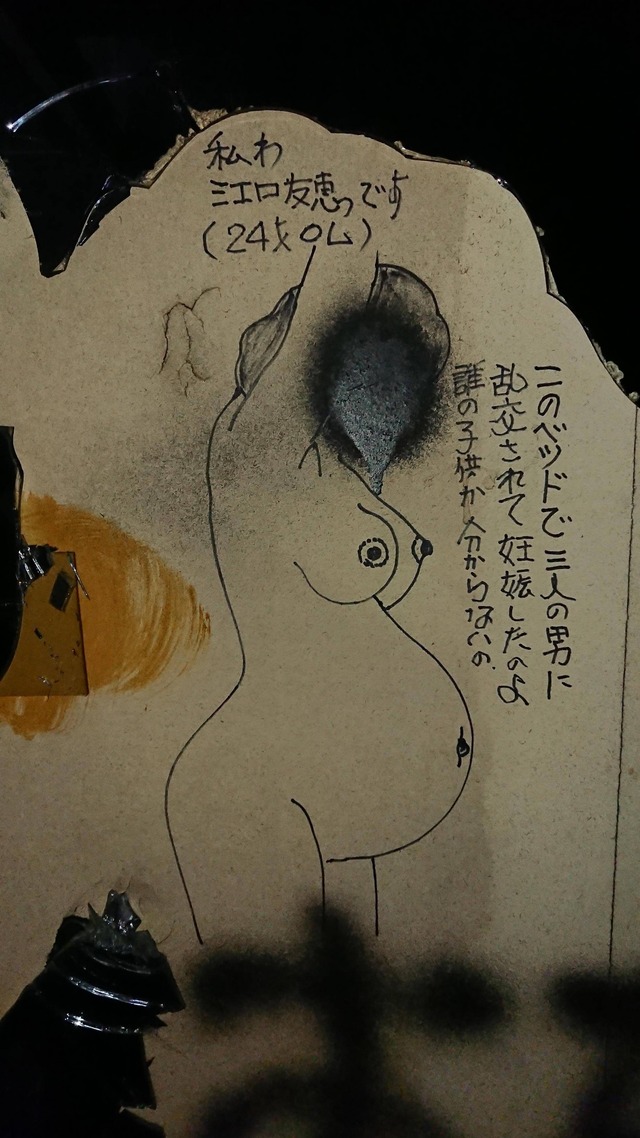 私わ
三エロ友恵っです
(24才OL)
二のベッドで三人の男に
乱交されて妊娠したのよ
誰の子供か分からないの.